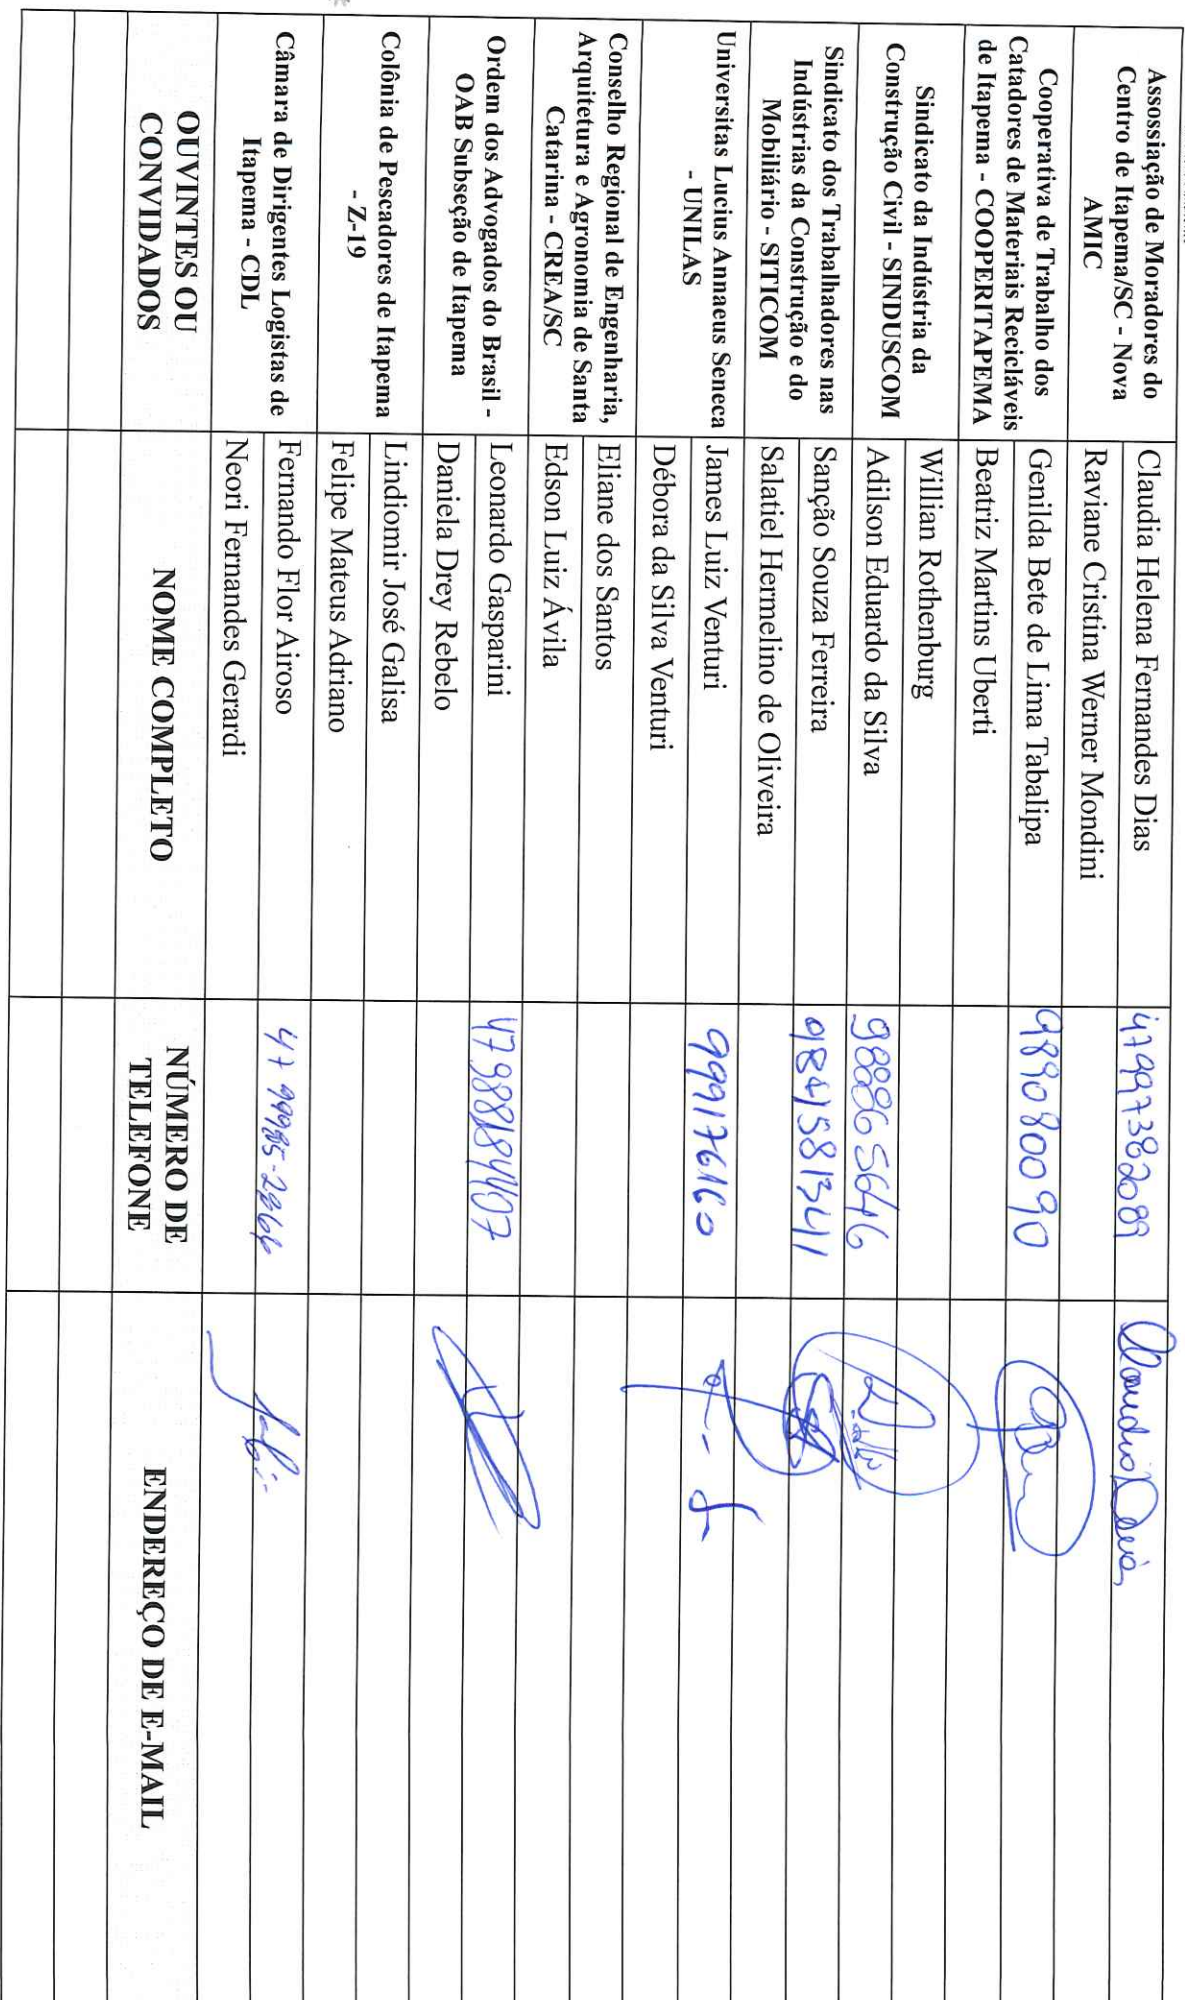 Assossiação de Moradores do
Centro de Itapema/SC - Nova
AMIC
Claudia Helena Fernandes Dias
47997382089
Claudia Dias
Raviane Cristina Werner Mondini
Cooperativa de Trabalho dos
Catadores de Materiais Recicláveis
de Itapema - COOPERITAPEMA
Genilda Bete de Lima Tabalipa
989080090
Beatriz Martins Uberti
Sindicato da Indústria da
Construção Civil - SINDUSCOM
Willian Rothenburg
Adilson Eduardo da Silva
988865646
Sindicato dos Trabalhadores nas
Indústrias da Construção e do
Mobiliário - SITICOM
Sanção Souza Ferreira
984581341
Salatiel Hermelino de Oliveira
Universitas Lucius Annaeus Seneca
- UNILAS
James Luiz Venturi
999176160
Débora da Silva Venturi
Conselho Regional de Engenharia,
Arquitetura e Agronomia de Santa
Catarina - CREA/SC
Eliane dos Santos
Edson Luiz Ávila
Ordem dos Advogados do Brasil -
OAB Subseção de Itapema
Leonardo Gasparini
47988184407
Daniela Drey Rebelo
Colônia de Pescadores de Itapema
- Z-19
Lindiomir José Galisa
Felipe Mateus Adriano
Câmara de Dirigentes Logistas de
Itapema - CDL
Fernando Flor Airoso
47 99985-2866
Neori Fernandes Gerardi
OUVINTES OU
CONVIDADOS
NOME COMPLETO
NÚMERO DE
TELEFONE
ENDEREÇO DE E-MAIL